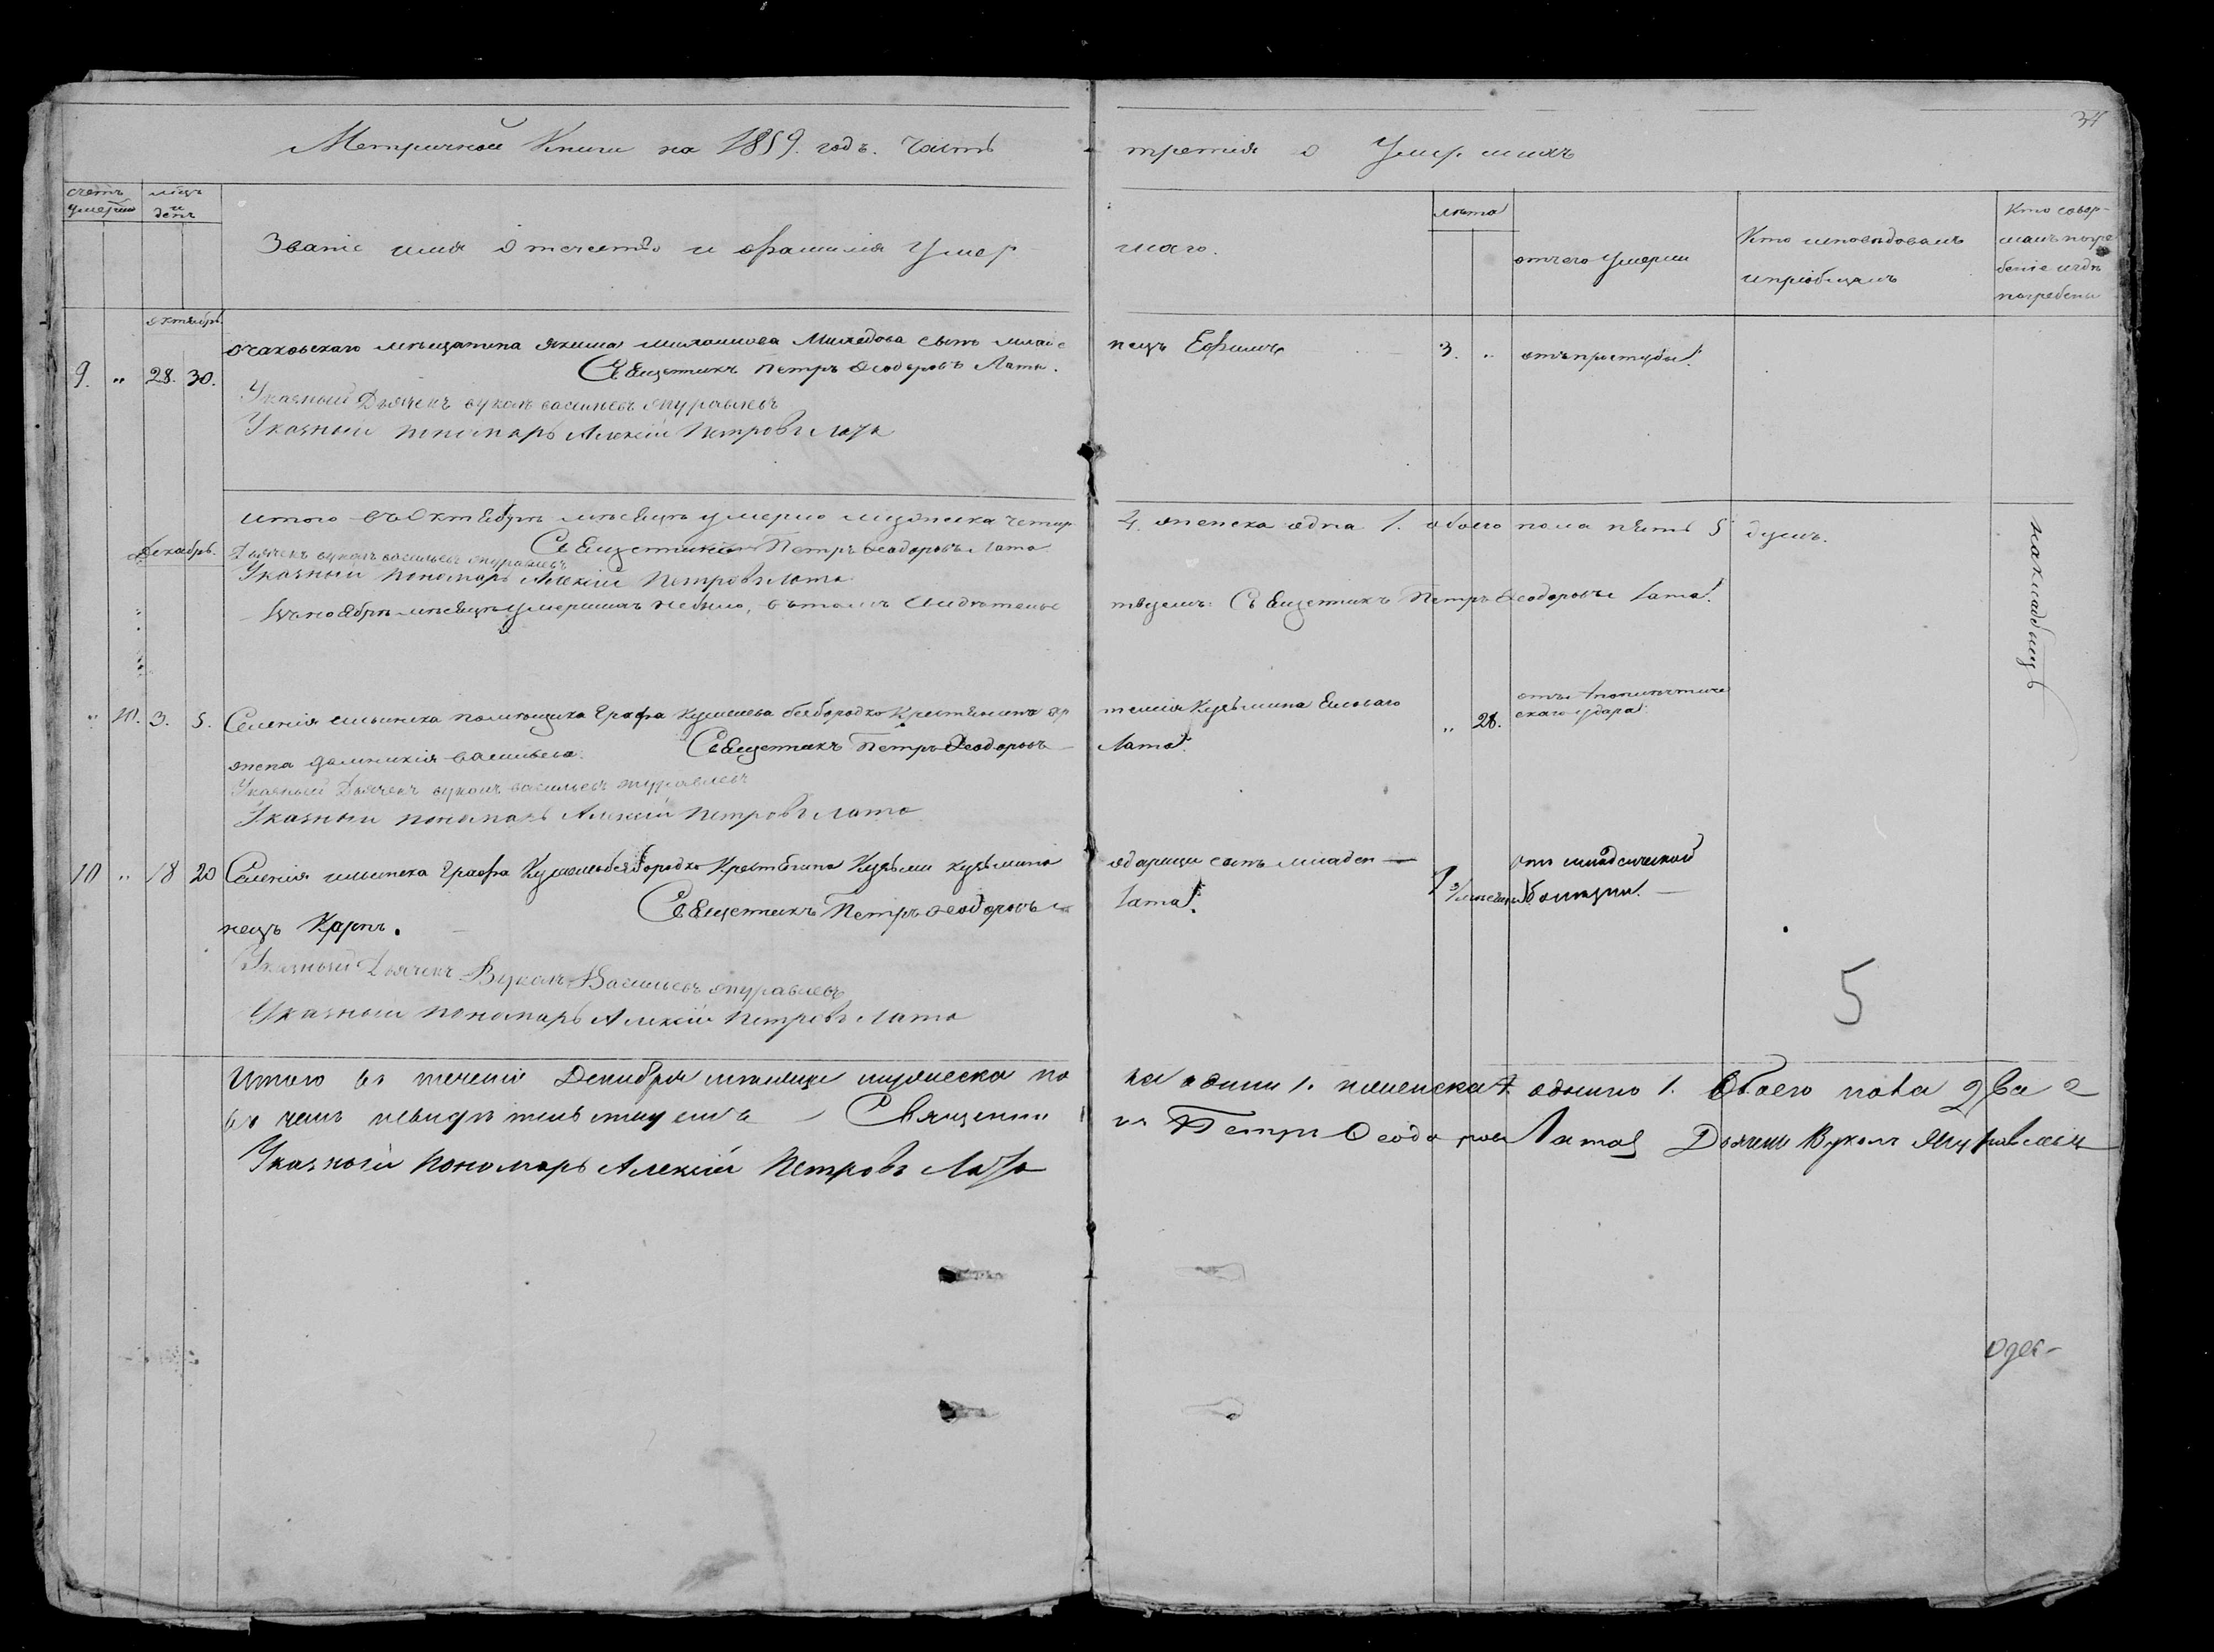 34
Метричной Книги на 1859. годъ. Часть третія о Умершихъ
счетъ умершихъ
мѣцъ и день
Званіе имя отечество и фамилія Умершаго.
лѣта
отчего Умерли
Кто исповѣдовалъ и пріобщалъ
Кто совершалъ погребеніе и гдѣ погребены
октябрь.
9. „ 28. 30. Очаковскаго мѣщанина Якима сынъ младенецъ Ефимъ 3. „ отъ простуды.
Священникъ Петръ Феодоровъ Лата.
Указный Дьячекъ Вуколъ Васильевъ Журавлевъ
Указный пономарь Алексій Петровъ Лата
итого въ Октябрѣ мѣсяцѣ умерло мужеска четыре 4. женска одна 1. обоего пола пять 5 душъ.
Декабрь.
Священникъ Петръ Феодоровъ Лата
Дьячекъ Вуколъ Васильевъ Журавлевъ
Указный пономарь Алексій Петровъ Лата
въ ноябрѣ мѣсяцѣ умершихъ небыло, въ томъ свидѣтельствуемъ: Священникъ Петръ Феодоровъ Лата.
на кладбищѣ
„ 10. 3. 5. Селенія ильинка помѣщика Графа Кушелева безбородко Крестьянина Кузьмина жена Васильева. „ 28. отъ скаго удара.
Священникъ Петръ Феодоровъ Лата.
Указный Дьячекъ Вуколъ Васильевъ Журавлевъ
Указный пономарь Алексій Петровъ Лата
10 „ 18 20 Селенія ильинка Графа Кушелева безбородко Крестьянина Кузьмы Кузьмина сынъ младенецъ Карпъ. отъ младенческой болѣзни.
Священникъ Петръ Феодоровъ Лата.
Указный Дьячекъ Вуколъ Васильевъ Журавлевъ
Указный пономарь Алексій Петровъ Лата
5
Итого въ теченіи Декабря мѣсяца мужеска пола одинъ 1. женска 1. обоего пола два 2
въ чемъ и свидѣтельствуемъ Священникъ Петръ Феодоровъ Лата Дьячекъ Вуколъ Журавлевъ
Указный Пономарь Алексій Петровъ Лата